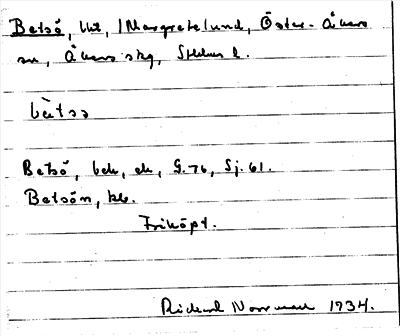 Betsö, lht, /Margretelund, Öster-Åkers
sn, Åkers skg, Sthlms l.
bètsö
Betsö, beb, ek, G.76, Sj.61.
Betsön, kb.
Friköpt.
Rickard Norrman 1934.